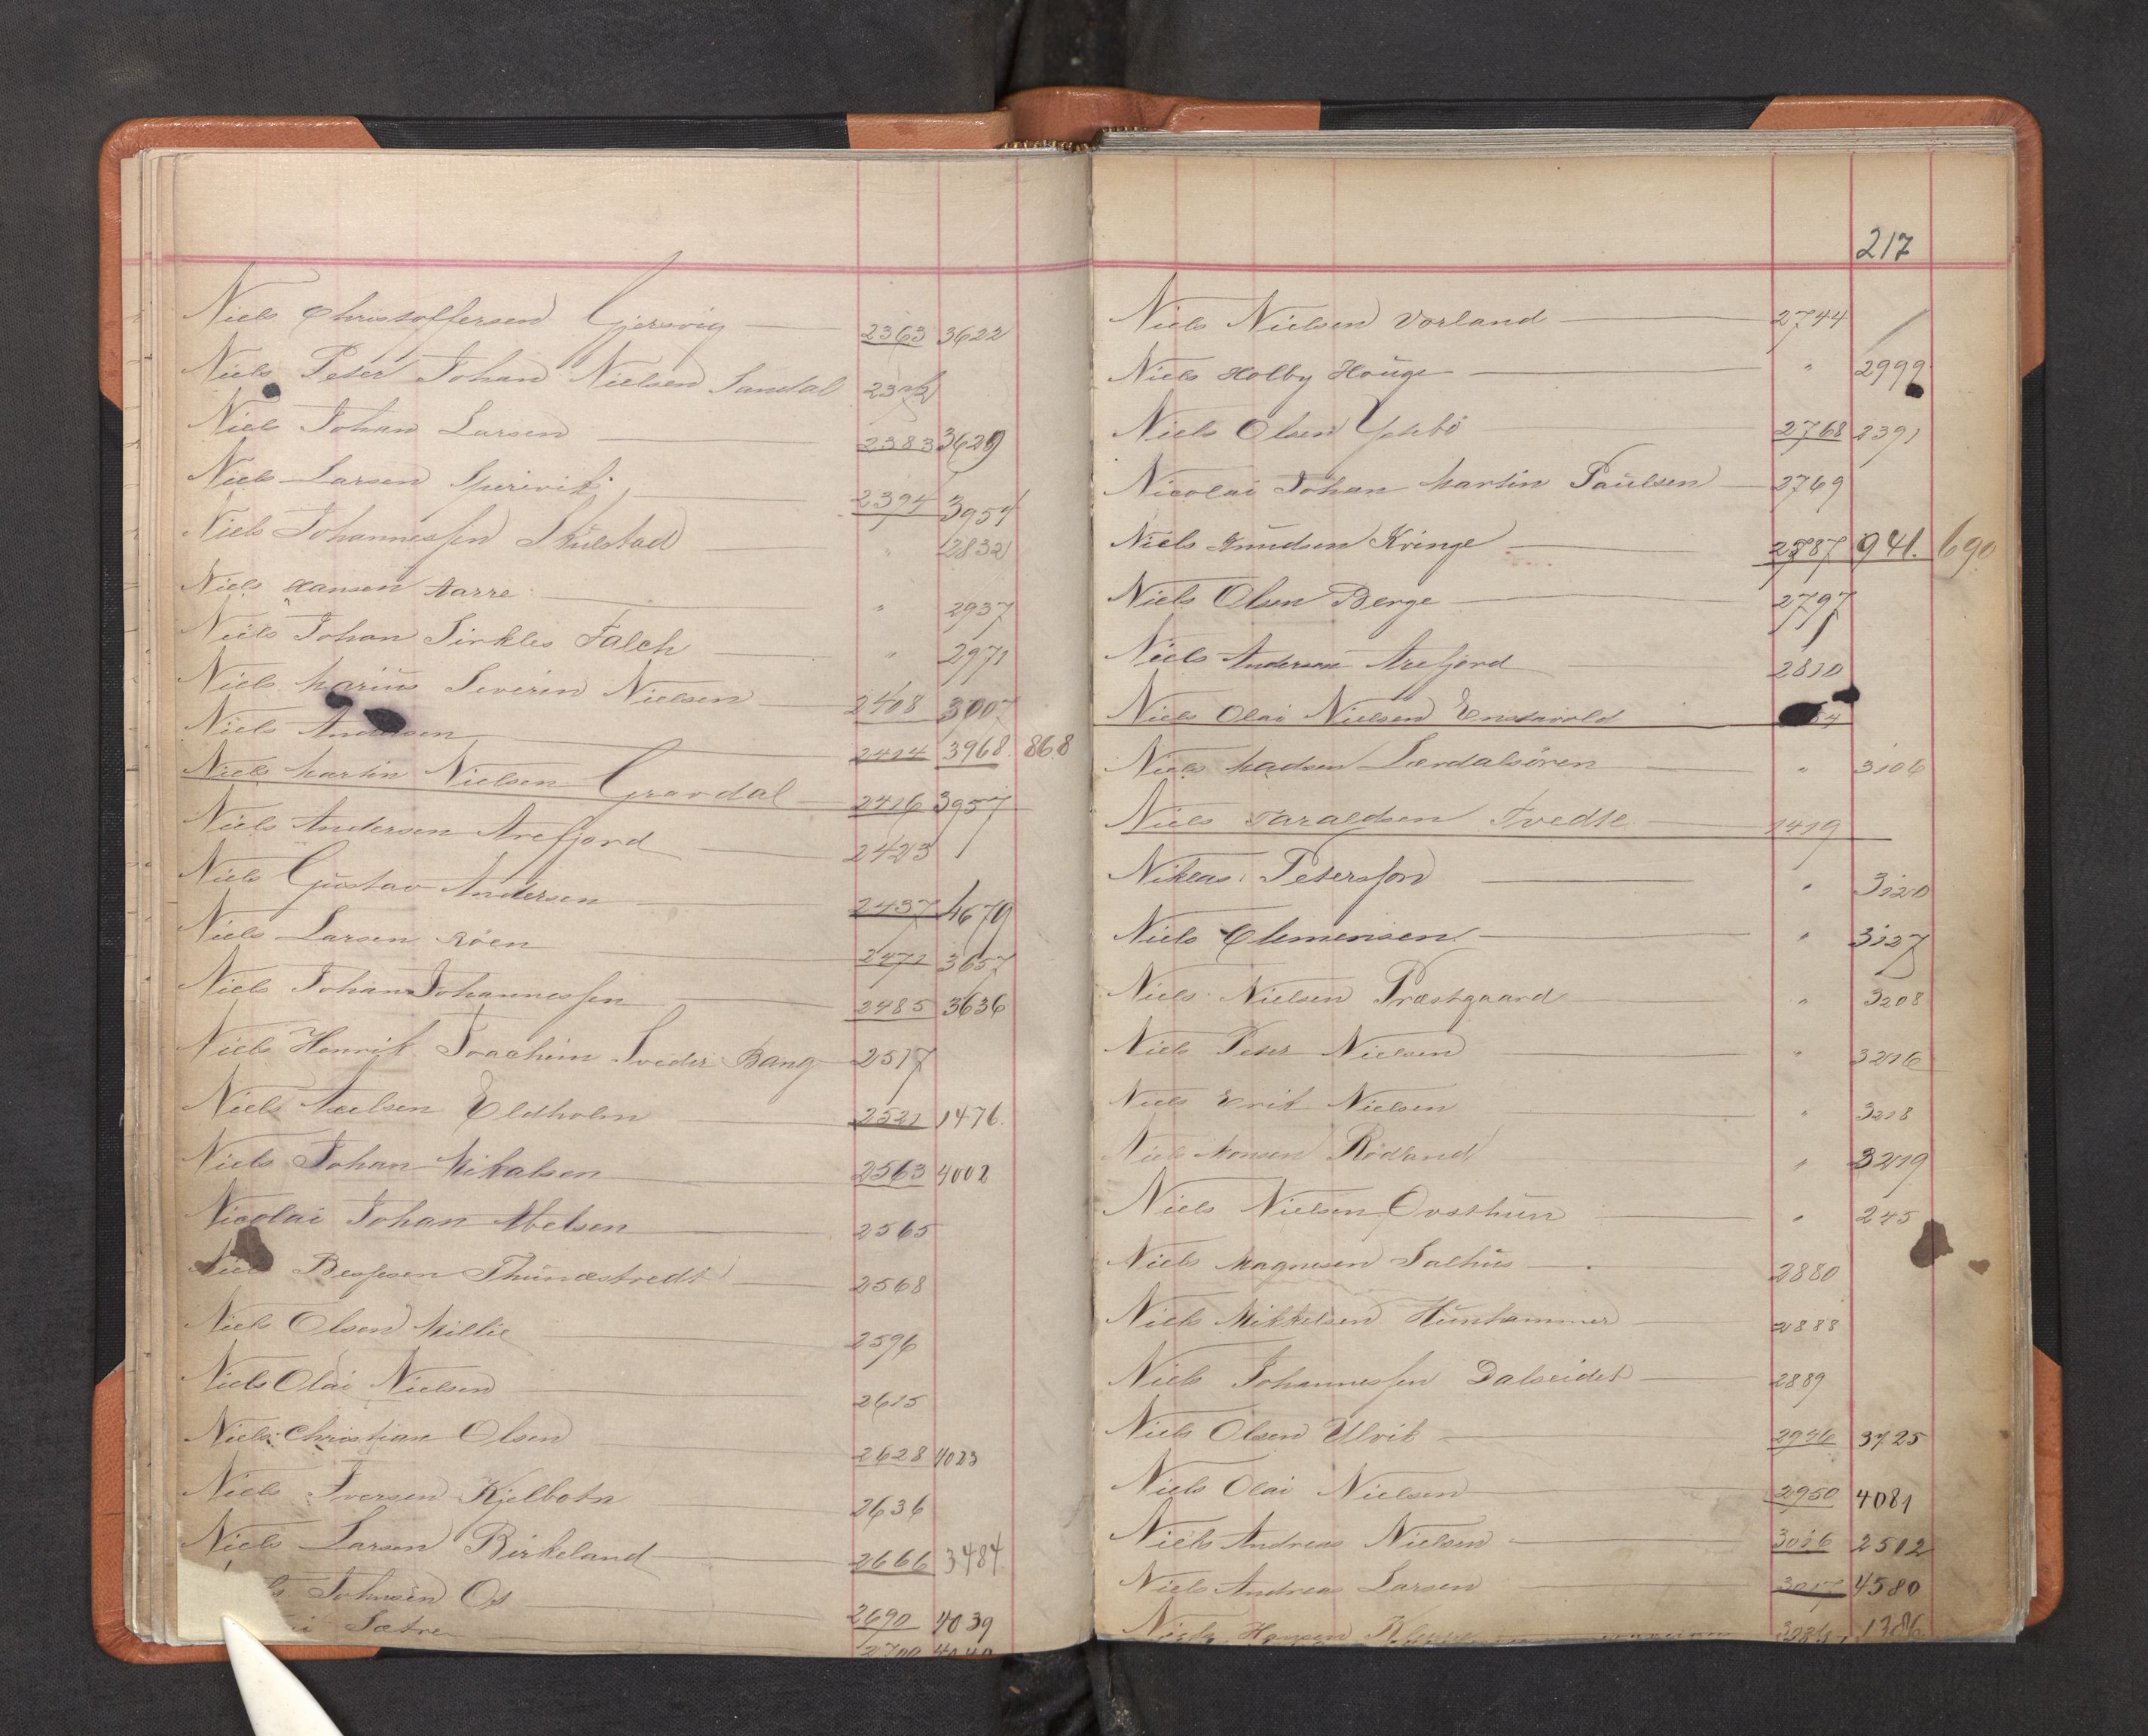 Niels Christoffersen Gjersvig 2363 3622
Niels Peter Johan Nielsen Sandal
Niels Johan Larsen 2383 3629
Niels Larsen 2394 3957
Niels Johannessen Skulstad " 2832
Niels Hansen Aarre " 2937
Niels Johan Falch " 2971
Niels Marius Severin Nielsen 2408 3007
Niels Andersen 2414 3968 868
Niels Martin Nielsen Gravdal 2416 3957
Niels Andersen Arefjord 2423
Niels Gustav Andersen 2437 4679
Niels Larsen Röen 2471 3657
Niels Johan Johannessen 2485 3636
Niels Henrik Joachim Bang 2517
Niels Eldholm 2521 1476.
Niels Johan Mikalsen 2563 4002
Nicolai Johan Abelsen 2565
Niels 2568
Niels Olsen Millie 2596
Niels Olai Nielsen 2615
Niels Christian Olsen 2628 4023
Niels Iversen Kjelbotn 2636
Niels Larsen Birkeland 2666 3484
Johnsen Os 2690 4039
Sætre 2700
217
Niels Nielsen Vorland 2744
Niels Holby Houge " 2999
Niels Olsen 2768 2391
Nicolai Johan Martin Paulsen 2769
Niels Knudsen Kringe 2787 941. 690
Niels Olsen Berge 2797
Niels Andersen Arefjord 2810
Niels Olai Nielsen
Niels Madsen Lærdalsören " 3106
Niels Taraldsen Tvedte 1419
Niklas Peterssen " 3120
Niels Clemensen " 3127
Niels Nielsen Præstgaard " 3208
Niels Peter Nielsen " 3216
Niels Erik Nielsen " 3218
Niels Monsen Rödland " 3219
Niels Nielsen Ovsthun " 245
Niels Magnesen Salhus 2880
Niels Mikkelsen Hunhammer 2888
Niels Johannessen Dalseidet 2889
Niels Olsen Ulvik 2946 3725
Niels Olai Nielsen 2950 4081
Niels Andreas Nielsen 3016 2502
Niels Andreas Larsen 3017 4580
Niels Hansen 1386